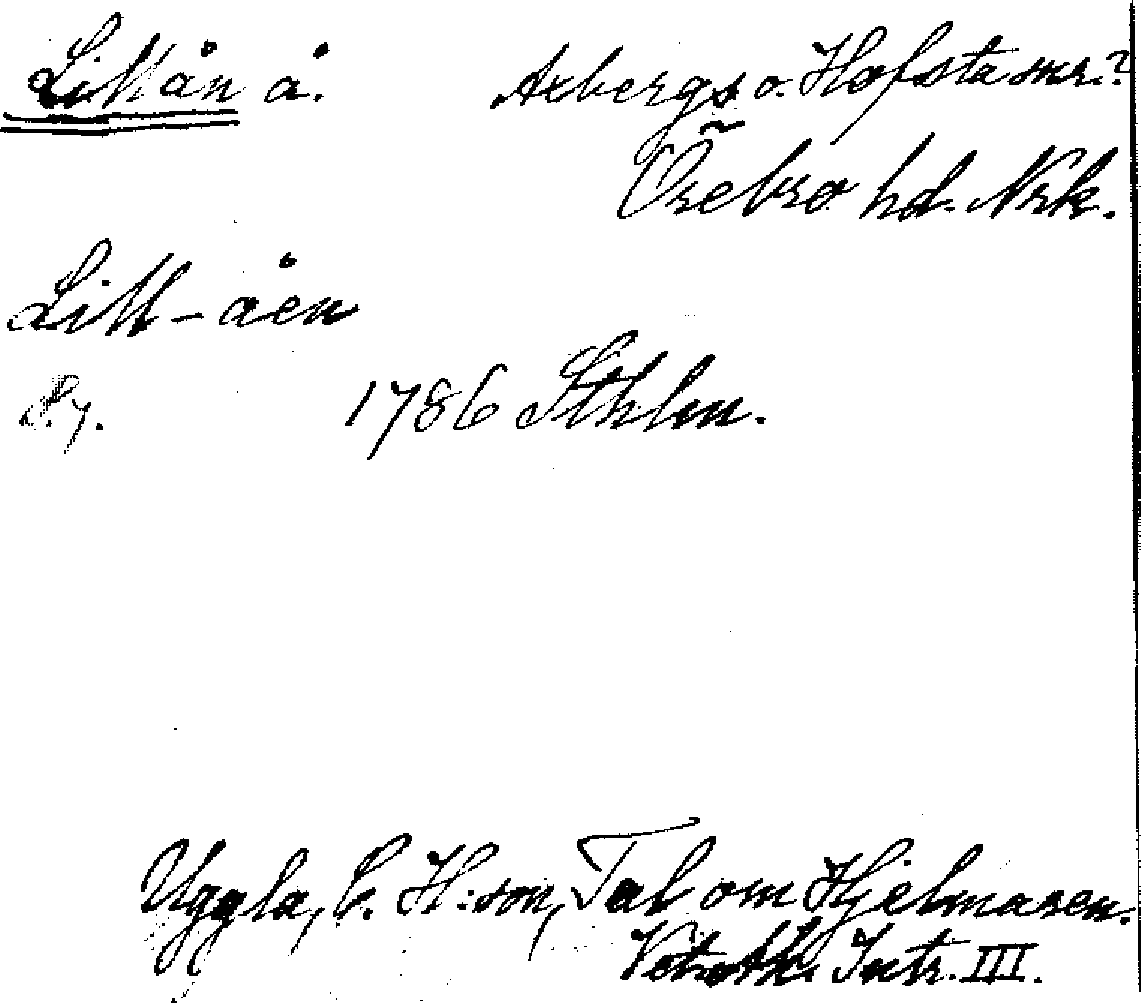 Lillån å. Axbergs o. Hofsta snr.?
Örebro hd. Nrk.
Lill-åen
S. 7. 1786 Sthlm.
Uggla, C. H:son, Tal om Hjelmaren.
Vet. Ak. Intr. III.